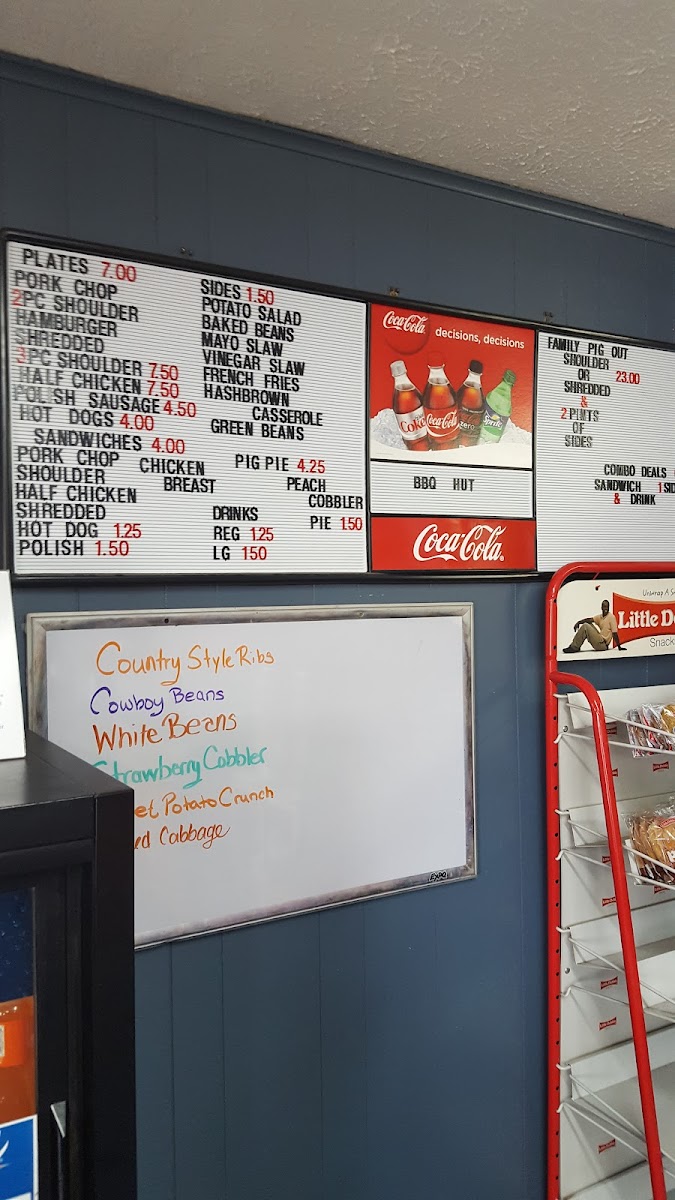 PLATES 7.00
PORK CHOP
2PC SHOULDER
HAMBURGER
SHREDDED
3PC SHOULDER 7.50
HALF CHICKEN 7.50
POLISH SAUSAGE 4.50
HOT DOGS 4.00
SANDWICHES 4.00
PORK CHOP CHICKEN
SHOULDER BREAST
HALF CHICKEN
SHREDDED
HOT DOG 1.25
POLISH 1.50
SIDES 1.50
POTATO SALAD
BAKED BEANS
MAYO SLAW
VINEGAR SLAW
FRENCH FRIES
HASHBROWN
CASSEROLE
GREEN BEANS
PIG PIE 4.25
PEACH
COBBLER
PIE 1.50
DRINKS
REG 1.25
LG 150
Coca-Cola
decisions, decisions
Coke
Coca-Cola
zero
Sprite
BBQ HUT
Coca-Cola
FAMILY PIG OUT
SHOULDER
OR 23.00
SHREDDED
&
2 PINTS
OF
SIDES
COMBO DEALS
SANDWICH 1 SID
& DRINK
Country Style Ribs
Cowboy Beans
White Beans
Strawberry Cobbler
et Potato Crunch
ed Cabbage
EXPO
Unwrap A S
Little De
Snack